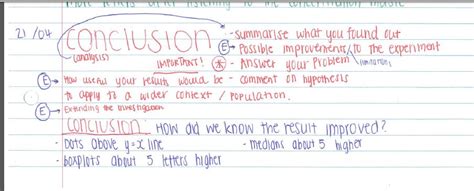 more letters after listening to the concentration music
21/04 CONCLUSION - summarise what you found out
(analysis) (E)→ Possible improvements to the experiment
IMPORTANT! (*) - Answer your Problem (limitations)
(E)→ How useful your results would be - comment on hypothesis
to apply to a wider context / population.
(E)→ Extending the investigation
conclusion How did we know the result improved?
- Dots above y=x line - medians about 5 higher
- boxplots about 5 letters higher